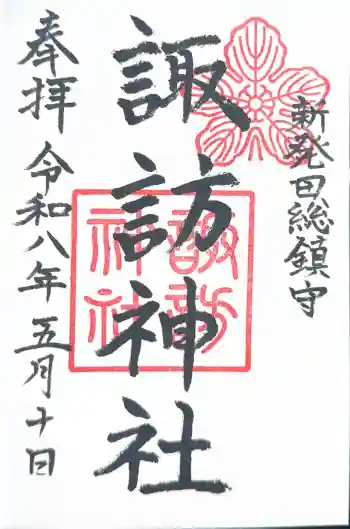 新発田総鎮守
諏訪神社
諏訪
神社
奉拝 令和八年五月十日